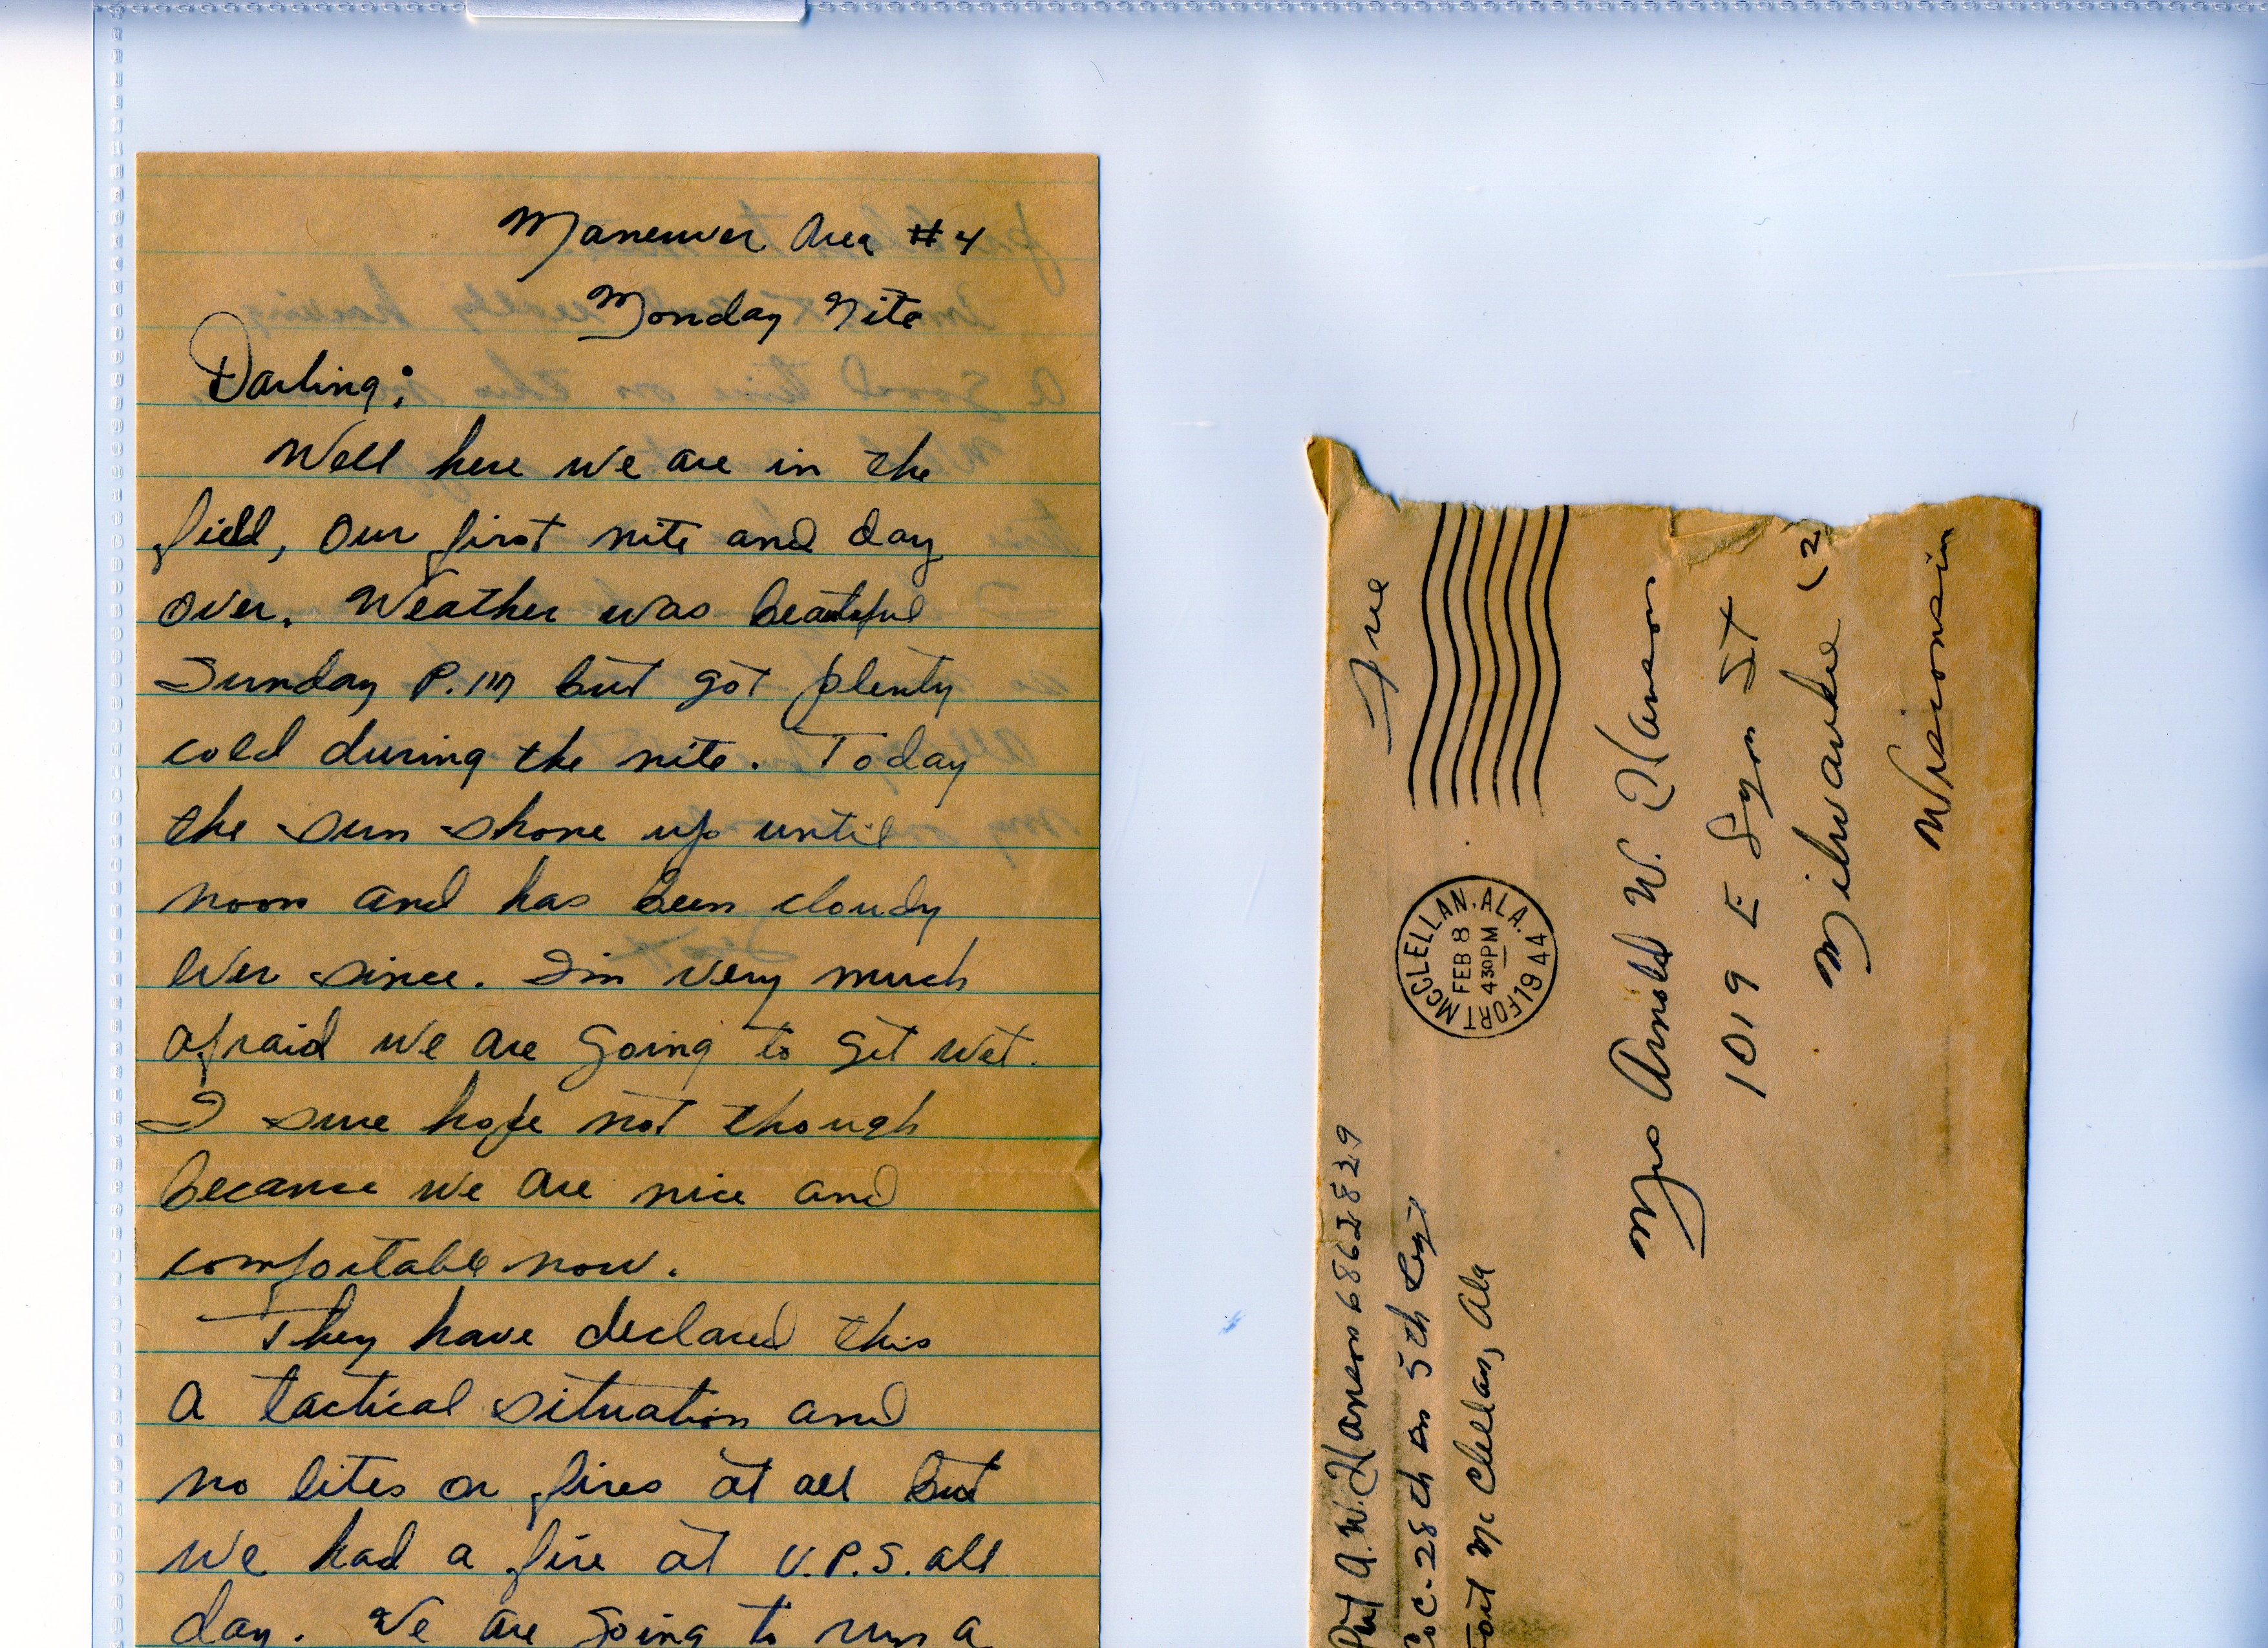 Maneuver Area #4
Monday Nite
Darling:
Well here we are in the
field, our first nite and day
over. Weather was beautiful
Sunday P.M but got plenty
cold during the nite. Today
the sun shone up until
noon and has been cloudy
ever since. I'm very much
afraid we are going to get wet.
I sure hope not though
because we are nice and
comfortable now.
They have declared this
a tactical situation and
no lites or fires at all but
we had a fire at V.P.S. all
day. We are going to run a
Free
FORT MCCLELLAN, ALA.
FEB 8
430PM
1944
Mrs Arnold W. Hanson
1019 E Lyon St
Milwaukee (2
Wisconsin
Pvt A.W. Hanson 6862829
Co C-28th Bn 5th Regt
Fort McClellan, Ala